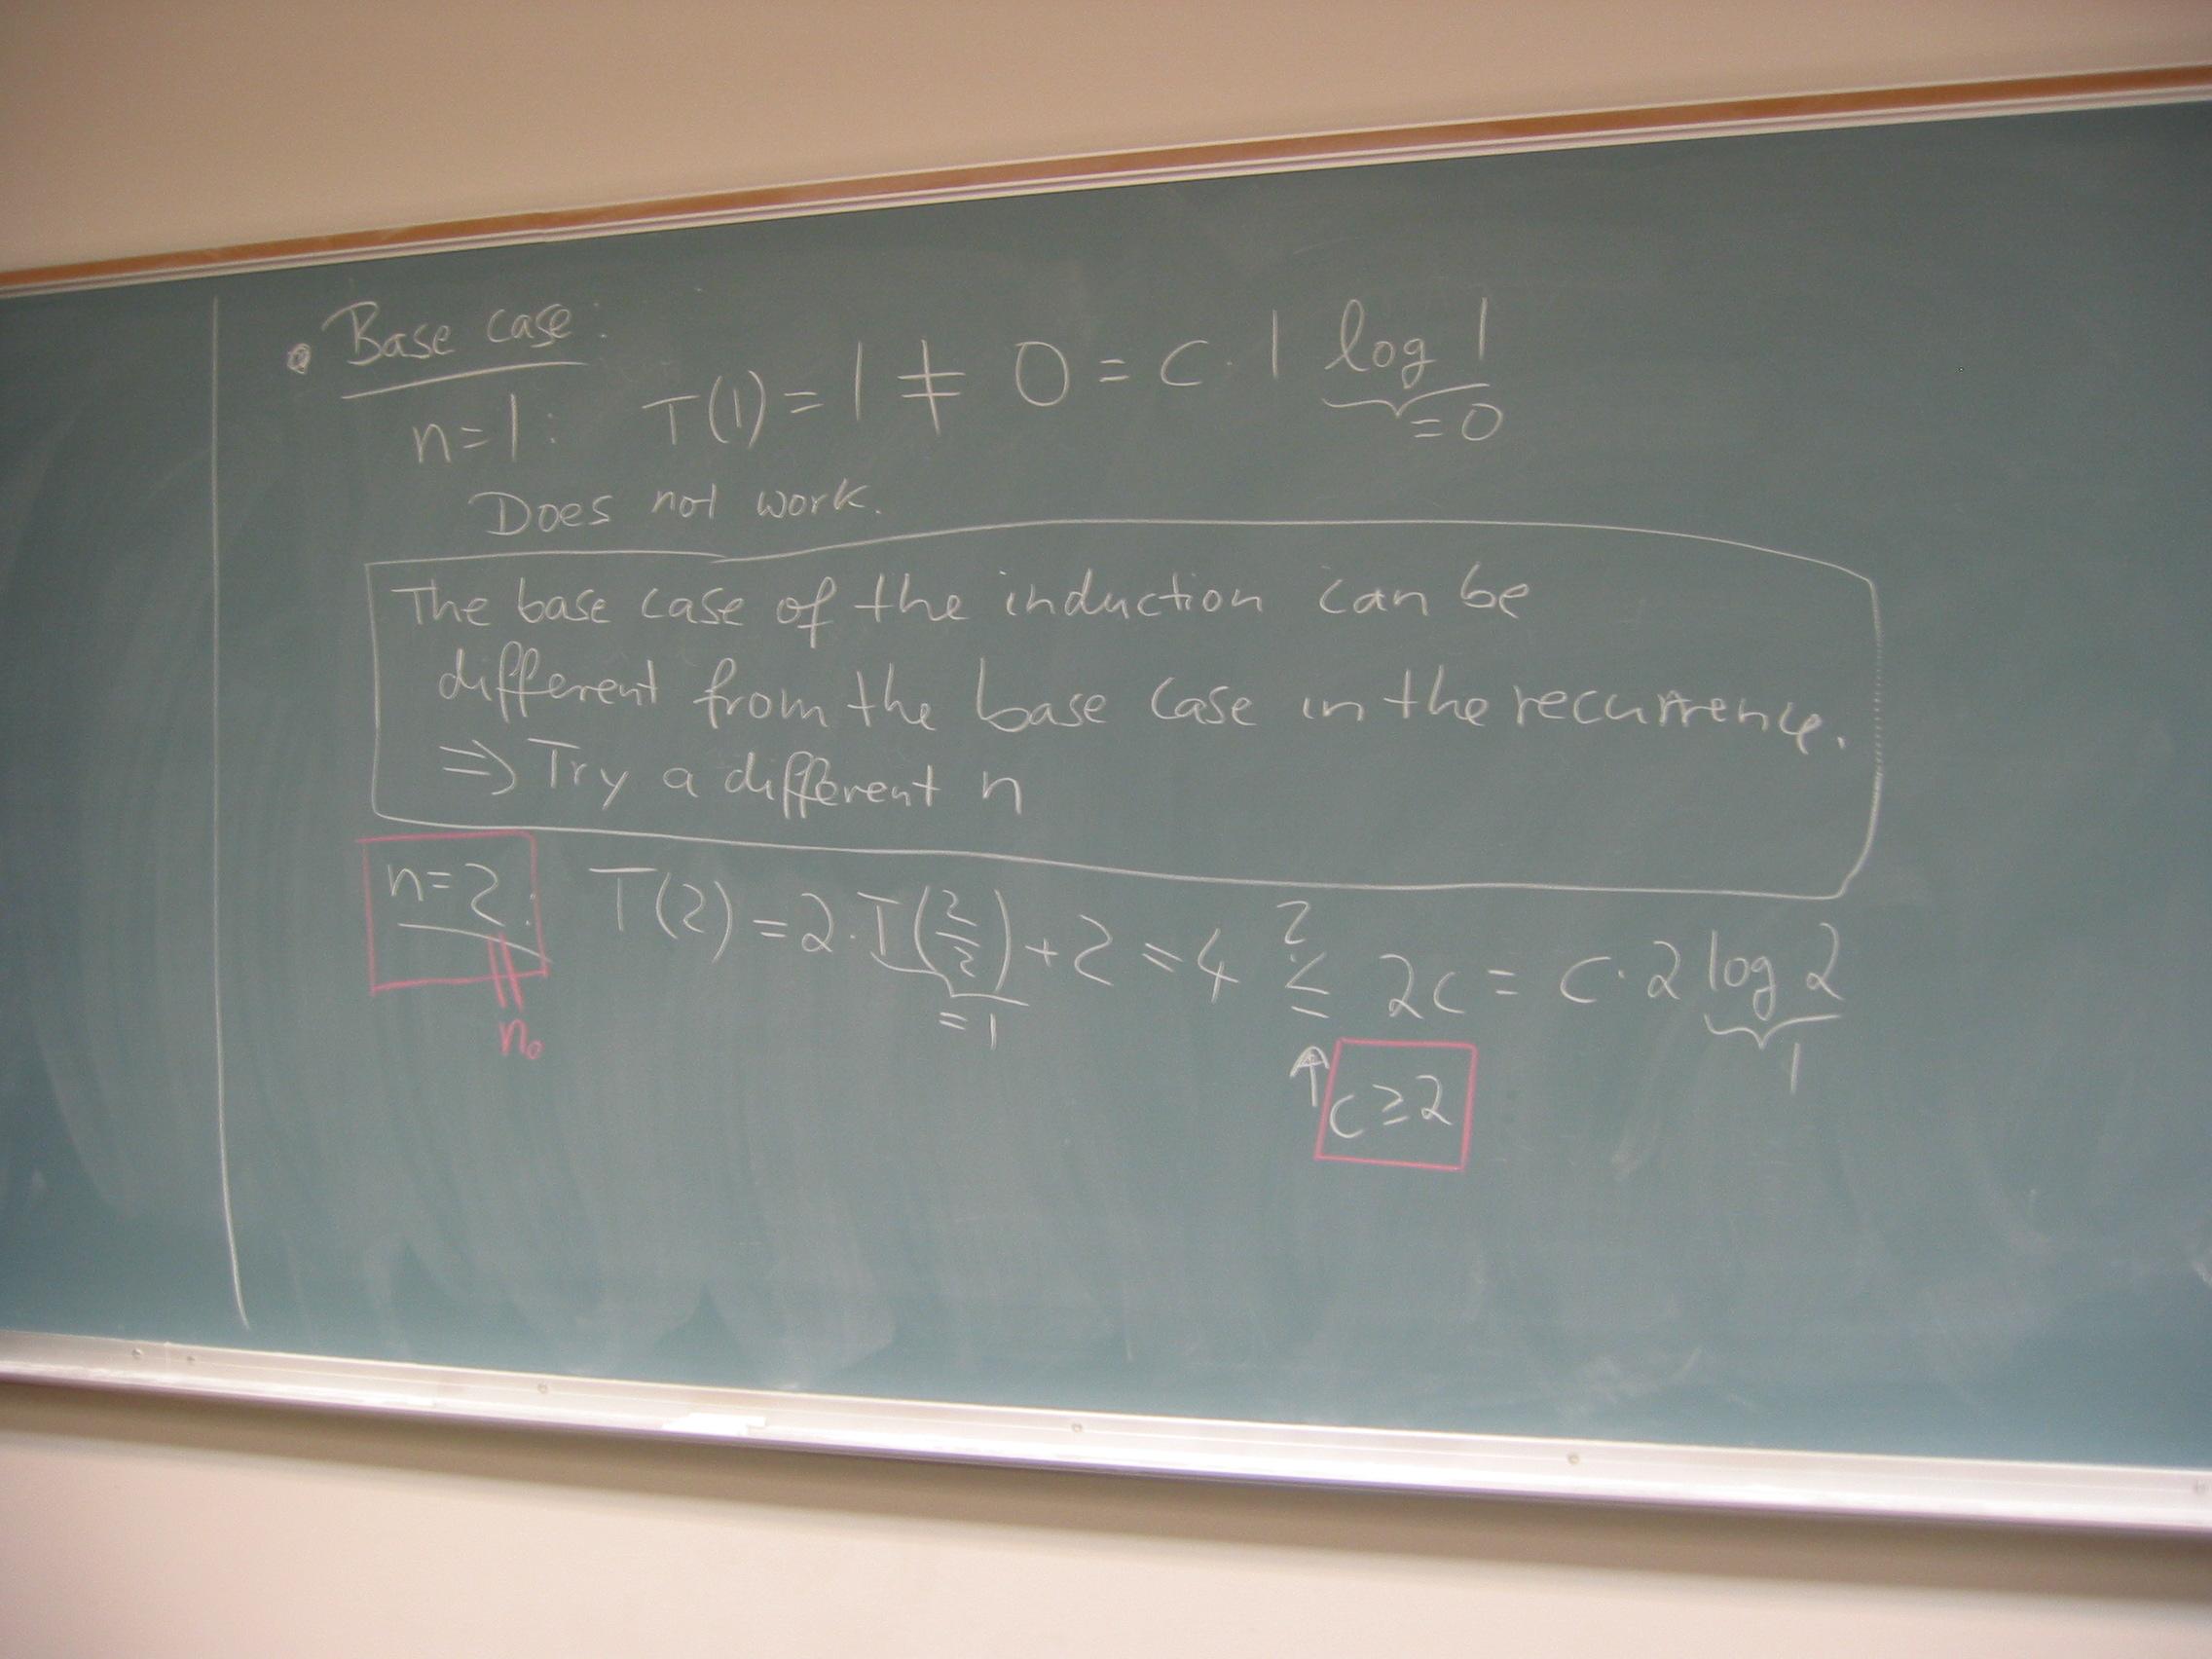 Base case:
n=1: T(1) = 1 ≠ 0 = c · 1 log 1
= 0
Does not work.
The base case of the induction can be
different from the base case in the recurrence.
⇒ Try a different n
n=2: T(2) = 2 · T(2/2) + 2 = 4 ≤? 2c = c · 2 log 2
= 1
1
n₀
↑ c ≥ 2